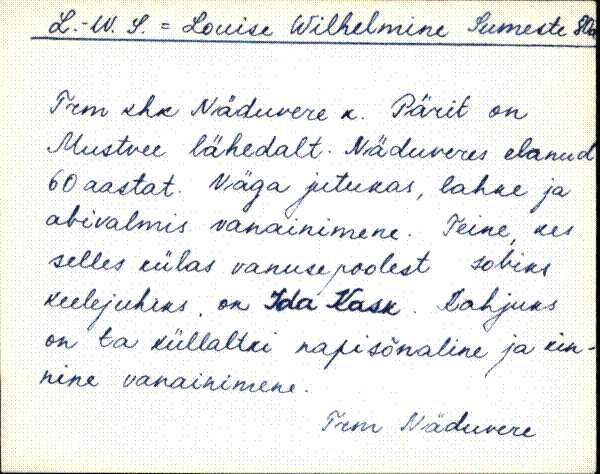 L.-W. S. = Louise Wilhelmine Sumeste 80a
Trm khk Näduvere k. Pärit on
Mustvee lähedalt. Näduveres elanud
60 aastat. Väga jutukas, lahke ja
abivalmis vanainimene. Teine, kes
selles külas vanuse poolest sobiks
keelejuhiks, on Ida Kask. Kahjuks
on ta küllaltki napisõnaline ja kin-
nine vanainimene.
Trm Näduvere